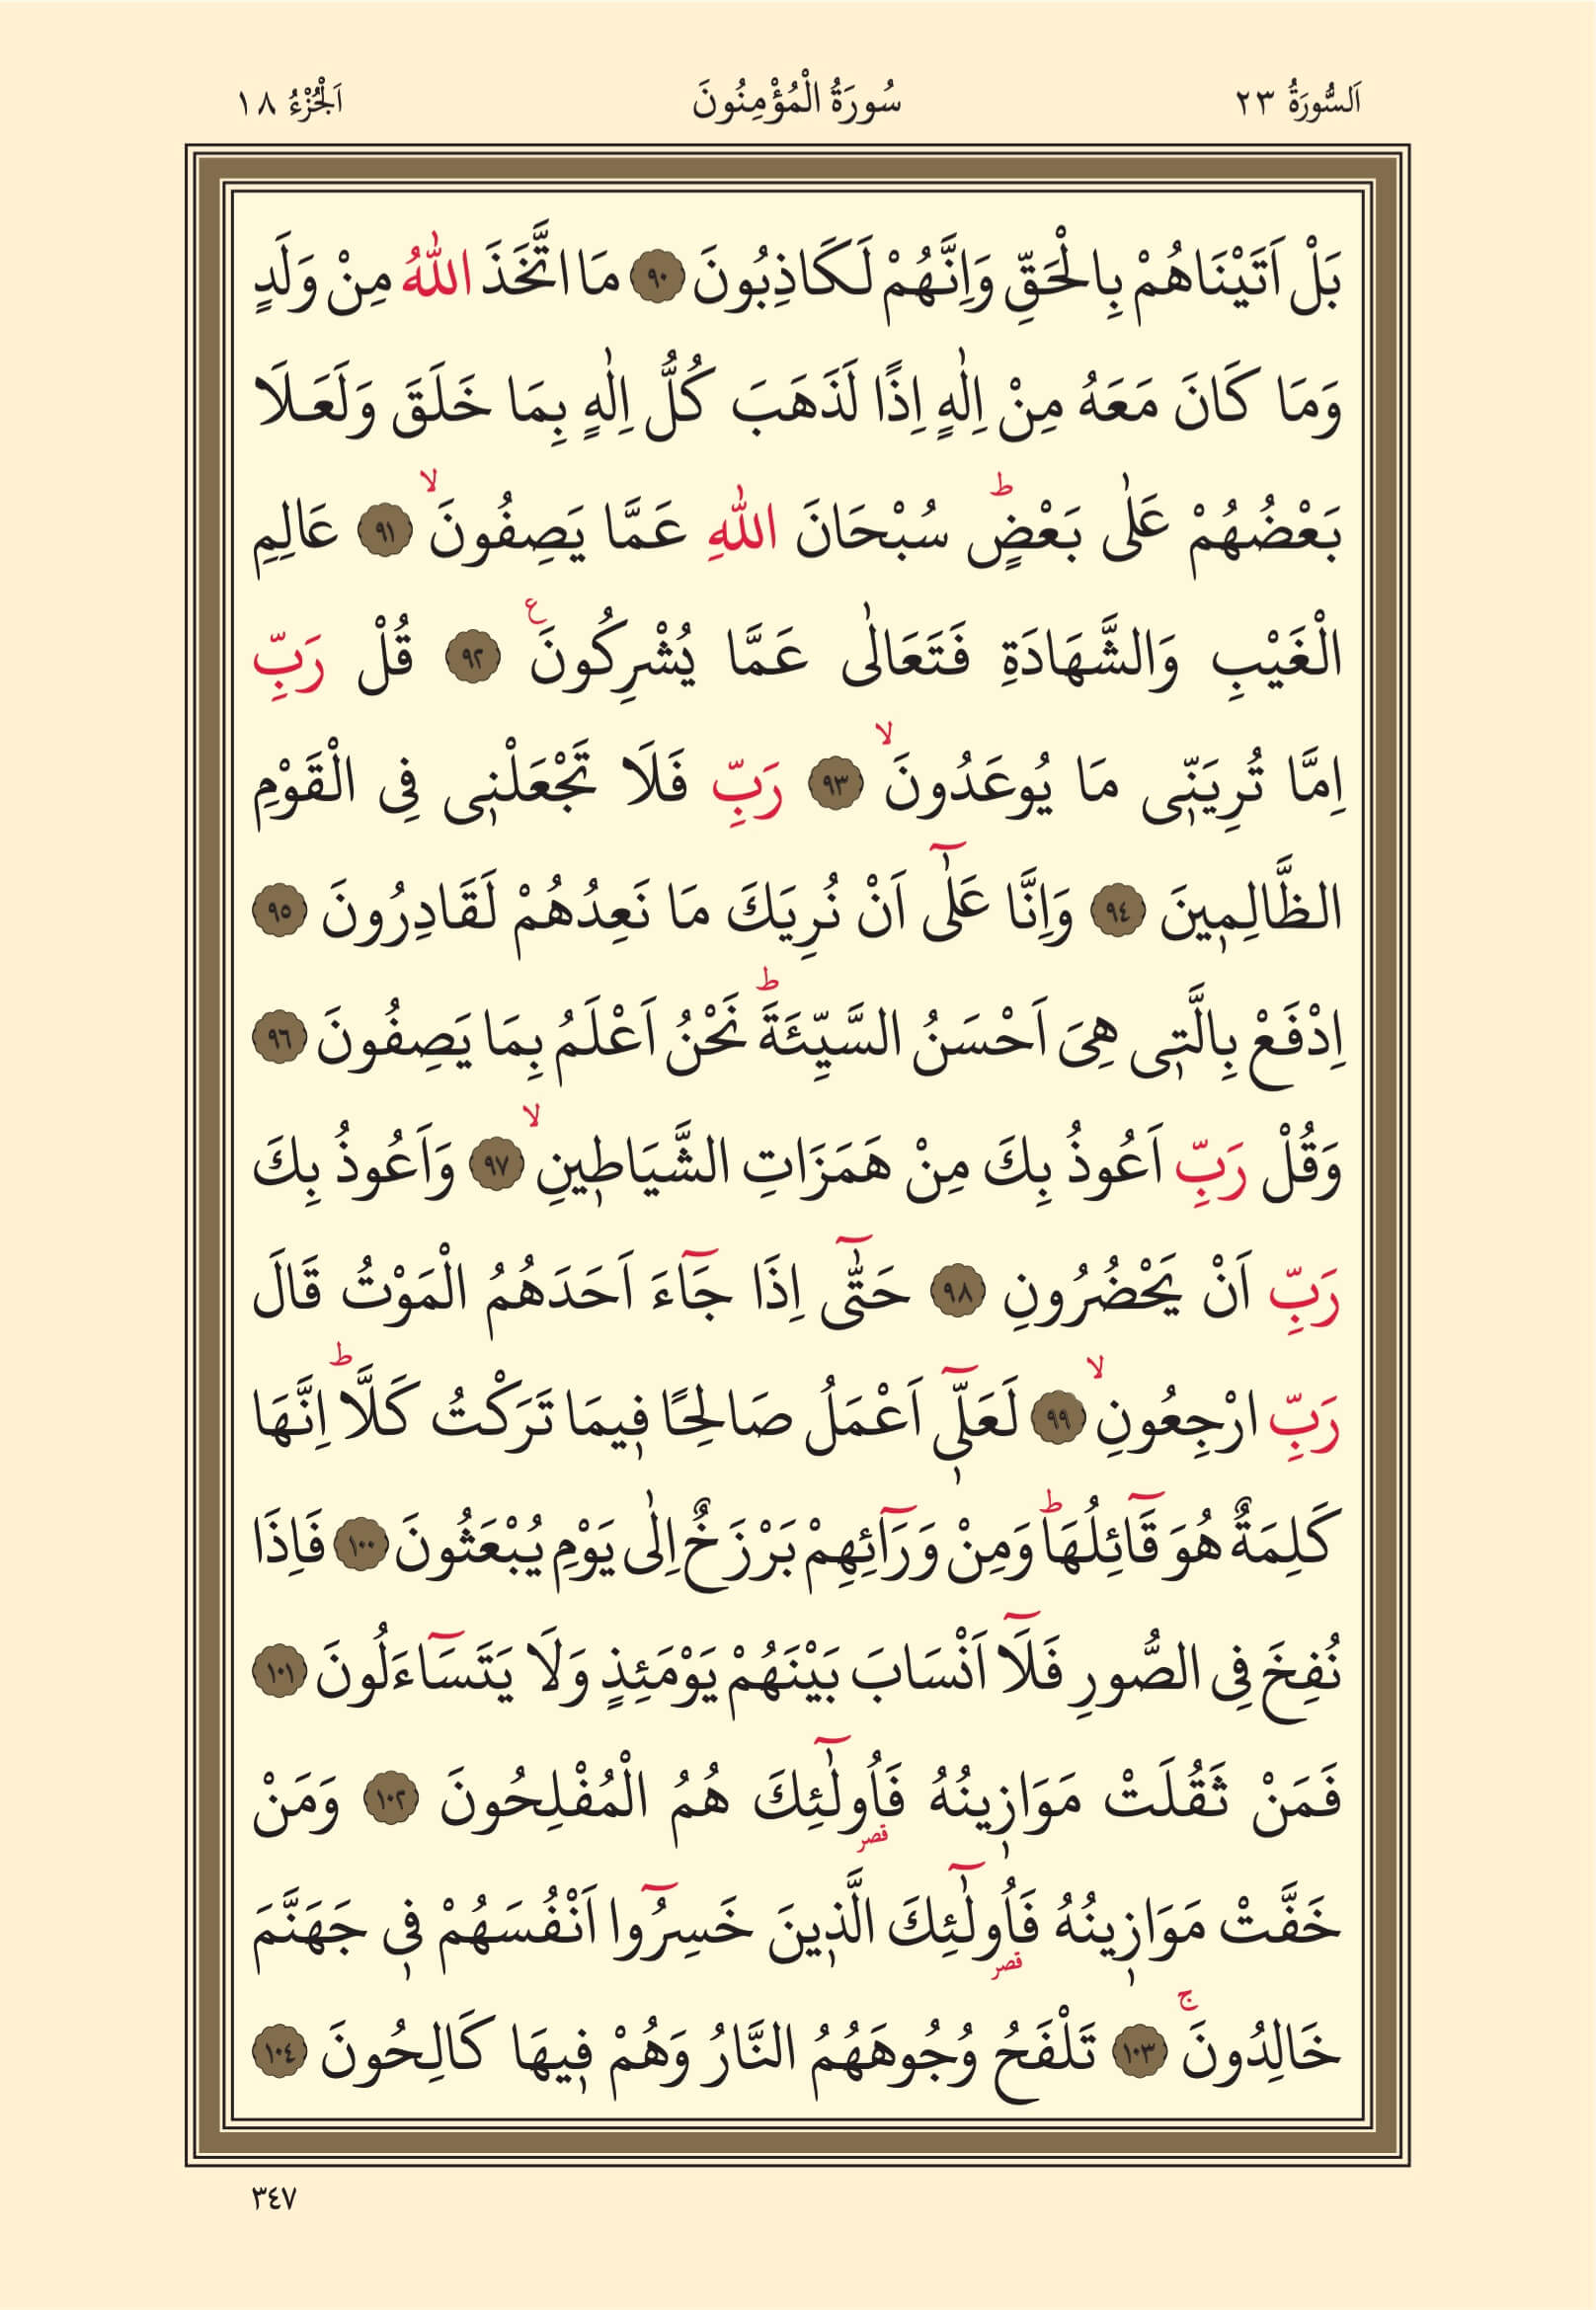 اَلسُّورَةُ ٢٣ سُورَةُ الْمُؤْمِنُونَ اَلْجُزْءُ ١٨
بَلْ اَتَيْنَاهُمْ بِالْحَقِّ وَاِنَّهُمْ لَكَاذِبُونَ ٩٠ مَا اتَّخَذَ اللّٰهُ مِنْ وَلَدٍ
وَمَا كَانَ مَعَهُ مِنْ اِلٰهٍ اِذًا لَذَهَبَ كُلُّ اِلٰهٍ بِمَا خَلَقَ وَلَعَلَا
بَعْضُهُمْ عَلٰى بَعْضٍؕ سُبْحَانَ اللّٰهِ عَمَّا يَصِفُونَۙ ٩١ عَالِمِ
الْغَيْبِ وَالشَّهَادَةِ فَتَعَالٰى عَمَّا يُشْرِكُونَ ع ٩٢ قُلْ رَبِّ
اِمَّا تُرِيَنّٖى مَا يُوعَدُونَۙ ٩٣ رَبِّ فَلَا تَجْعَلْنٖى فِى الْقَوْمِ
الظَّالِمٖينَ ٩٤ وَاِنَّا عَلٰٓى اَنْ نُرِيَكَ مَا نَعِدُهُمْ لَقَادِرُونَ ٩٥
اِدْفَعْ بِالَّتٖى هِىَ اَحْسَنُ السَّيِّئَةَؕ نَحْنُ اَعْلَمُ بِمَا يَصِفُونَ ٩٦
وَقُلْ رَبِّ اَعُوذُ بِكَ مِنْ هَمَزَاتِ الشَّيَاطٖينِۙ ٩٧ وَاَعُوذُ بِكَ
رَبِّ اَنْ يَحْضُرُونِ ٩٨ حَتّٰٓى اِذَا جَٓاءَ اَحَدَهُمُ الْمَوْتُ قَالَ
رَبِّ ارْجِعُونِۙ ٩٩ لَعَلّٖٓى اَعْمَلُ صَالِحًا فٖيمَا تَرَكْتُ كَلَّاؕ اِنَّهَا
كَلِمَةٌ هُوَ قَٓائِلُهَاؕ وَمِنْ وَرَٓائِهِمْ بَرْزَخٌ اِلٰى يَوْمِ يُبْعَثُونَ ١٠٠ فَاِذَا
نُفِخَ فِى الصُّورِ فَلَٓا اَنْسَابَ بَيْنَهُمْ يَوْمَئِذٍ وَلَا يَتَسَٓاءَلُونَ ١٠١
فَمَنْ ثَقُلَتْ مَوَازٖينُهُ فَاُولٰٓئِكَ قصر هُمُ الْمُفْلِحُونَ ١٠٢ وَمَنْ
خَفَّتْ مَوَازٖينُهُ فَاُولٰٓئِكَ قصر الَّذٖينَ خَسِرُٓوا اَنْفُسَهُمْ فٖى جَهَنَّمَ
خَالِدُونَۚ ١٠٣ تَلْفَحُ وُجُوهَهُمُ النَّارُ وَهُمْ فٖيهَا كَالِحُونَ ١٠٤
٣٤٧